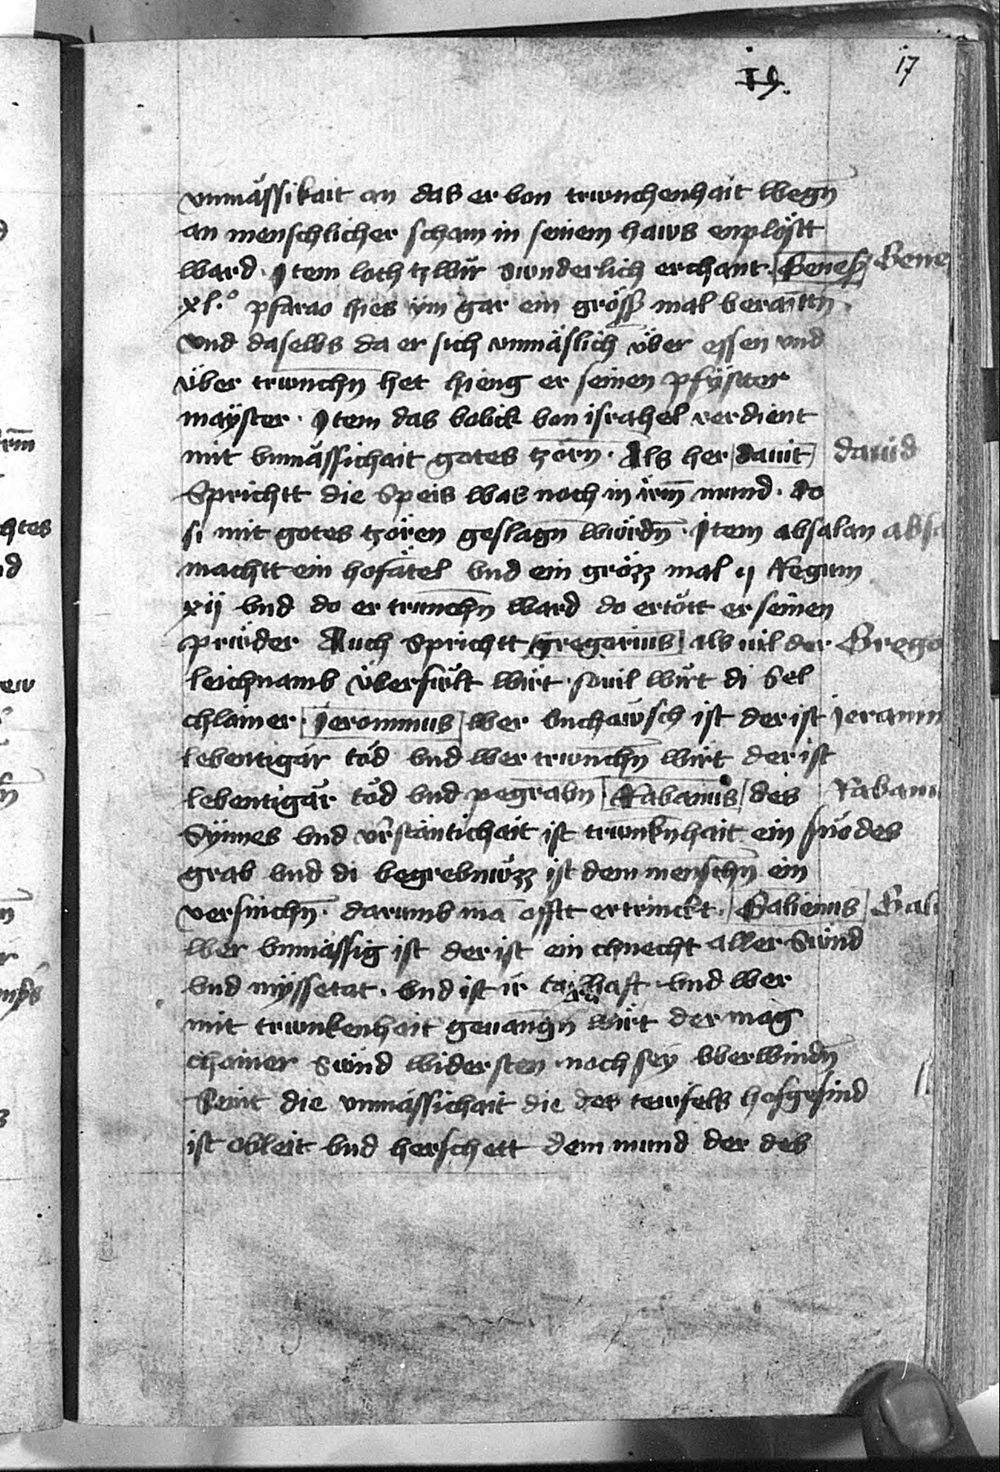 17
19.
vnmässikait an das er von trwnchenhait wegn̄
an menschlicher scham in seinem haws enplöstt
ward · Jtem loth tzwir swnderlich erchant · Genes Gene
xl.° pfarao hies ym gar ein gröss mal beraittn̄ ·
vnd daselbs da er sich vnmäslich über essen vnd
über trwnchn̄ het hieng er seinen pfyster
mayster · Jtem das volck von israhel verdient
mit vnmässichait gotes tzorn · Als her dauit dauid
Sprichtt die Speis was noch in irm̄ mund · do
si mit gotes tzoren geslagn̄ würdn̄ · Jtem absalon abs
machtt ein hofätel vnd ein grözz mal ij Regum
xij vnd do er trunchn̄ ward do ertott er seinen
prüder Auch Sprichtt gregorius als vil der Grego
leichnamb überfült wirt · souil wirt di Sel
chlainer · Jeronimus wer vnchäwsch ist der ist Jeronim
lebenttigär töd vnd wer trwnchn̄ wirt der ist
lebentigär töd vnd pegrabn̄ Rabanus des Raban
Synnes vnd v̄rstäntichait ist trwnkn̄hait ein snödes
grab vnd di begrebnüzz ist dem menschn̄ ein
versinchn̄ · darumb mā offtt ertrinckt · Galienus Gali
wer vnmässig ist der ist ein chnecht aller Swnd
vnd myssetat · vnd ist ir tailhaft · vnd wer
mit trwnkenhait geuangn̄ wirt der mag
chainer Swnd widersten noch sey vberwindn̄
Seint die vnmässichait die des tewfels hofgesind
ist obleit vnd herschett dem mund der des